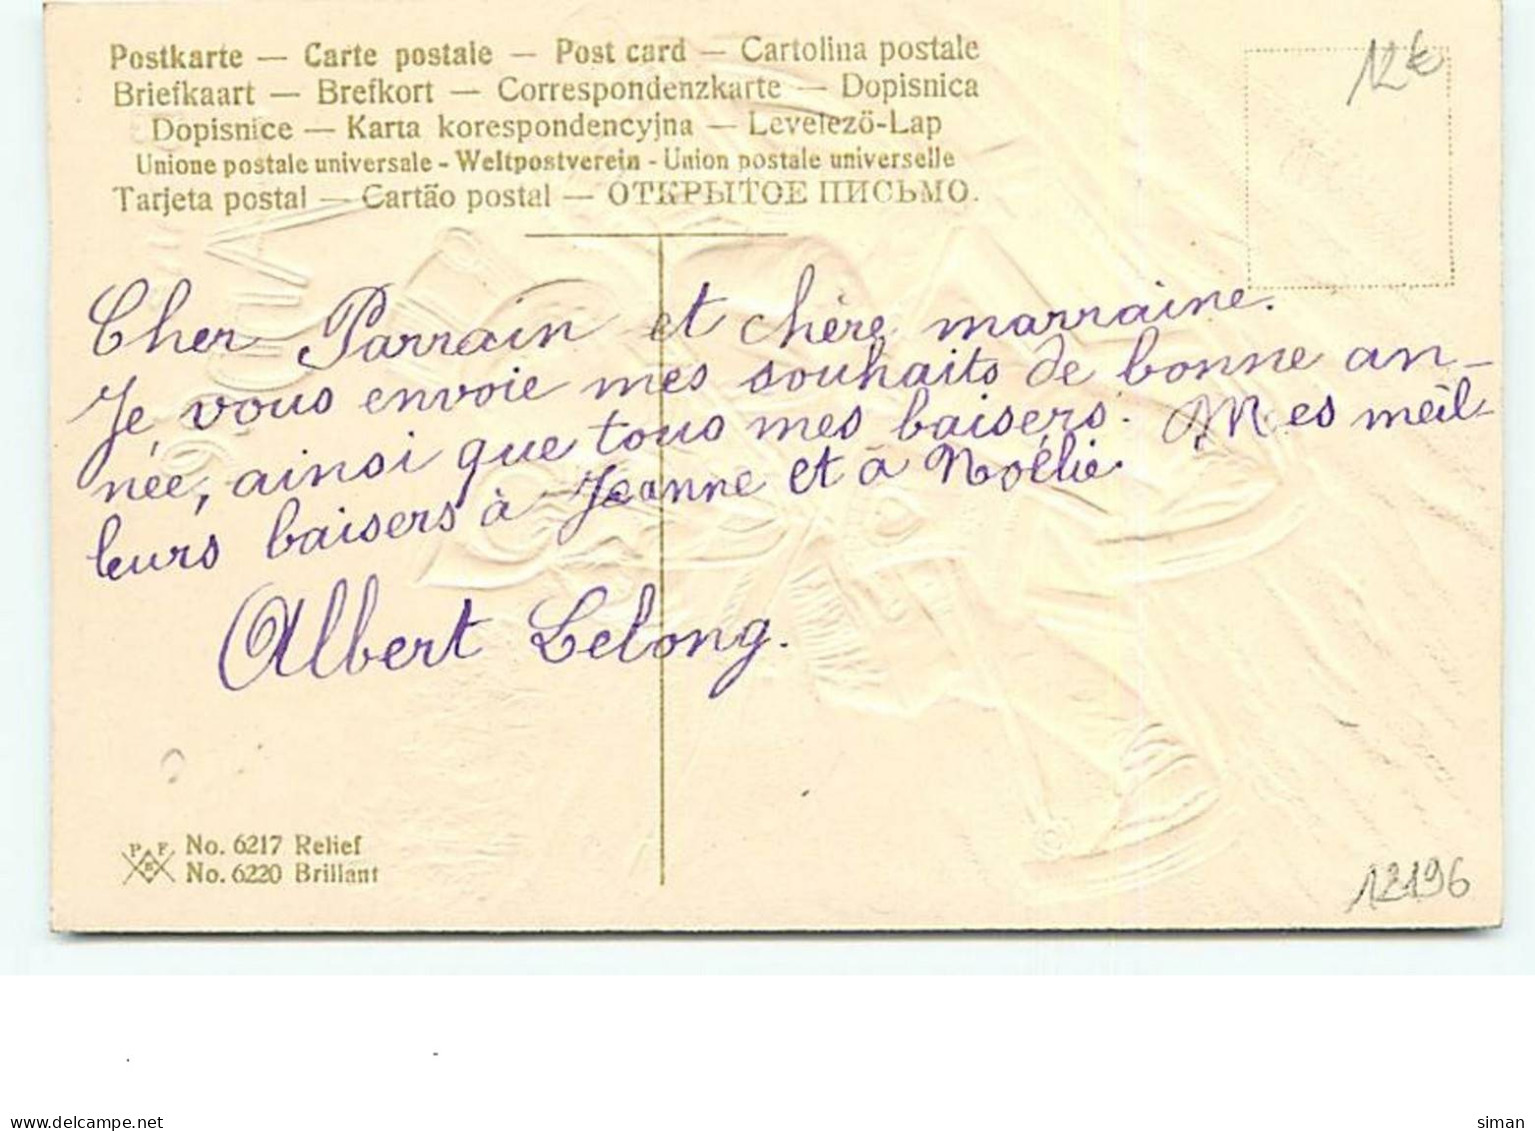 Postkarte — Carte postale — Post card — Cartolina postale
Briefkaart — Brefkort — Correspondenzkarte — Dopisnica
Dopisnice — Karta korespondencyjna — Levelező-Lap
Unione postale universale - Weltpostverein - Union postale universelle
Tarjeta postal — Cartão postal — ОТКРЫТОЕ ПИСЬМО.
12€
Cher Parrain et chère marraine.
Je vous envoie mes souhaits de bonne an-
née, ainsi que tous mes baisers. Mes meil-
leurs baisers à Jeanne et à Noélie.
Albert Lelong.
P F B
No. 6217 Relief
No. 6220 Brillant
12196
www.delcampe.net
siman